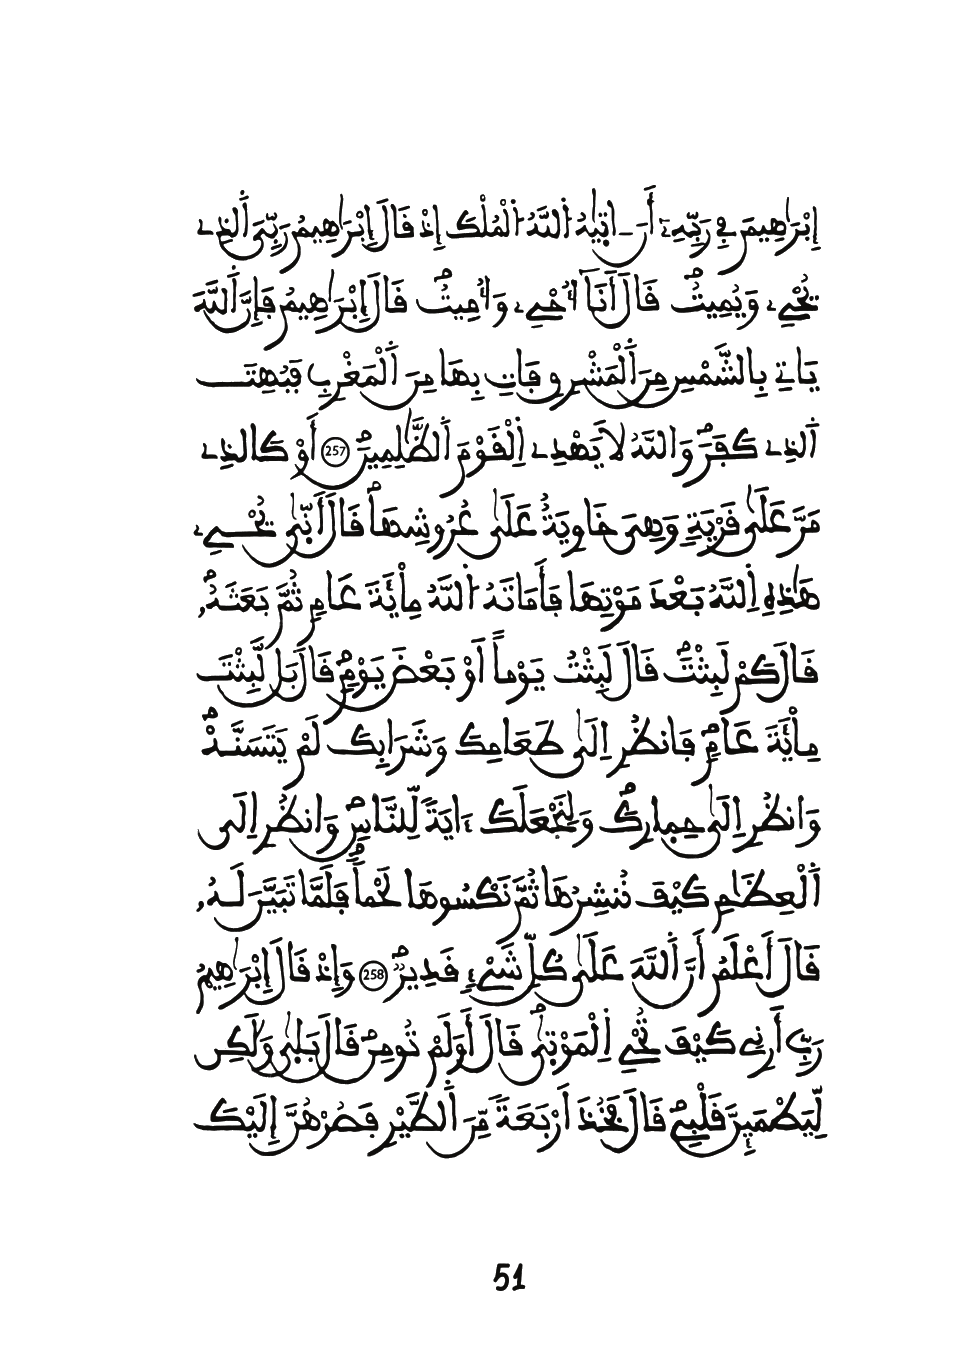 إِبْرَٰهِيمَ فِے رَبِّهِۦٓ أَنَ ـ اتَيٰهُ اُ۬للَّهُ اُ۬لْمُلْكَ إِذْ قَالَ إِبْرَٰهِيمُ رَبِّيَ اَ۬لذِے
يُحْيِۦ وَيُمِيتُ قَالَ أَنَآ أُحْيِۦ وَأُمِيتُ قَالَ إِبْرَٰهِيمُ فَإِنَّ اَ۬للَّهَ
يَاتِے بِالشَّمْسِ مِنَ اَ۬لْمَشْرِقِ فَاتِ بِهَا مِنَ اَ۬لْمَغْرِبِ فَبُهِتَ
اَ۬لذِے كَفَرَ وَاللَّهُ لَا يَهْدِے اِ۬لْقَوْمَ اَ۬لظَّٰلِمِينَ 257 أَوْ كَالذِے
مَرَّ عَلَىٰ قَرْيَةٍ وَهِيَ خَاوِيَةٌ عَلَىٰ عُرُوشِهَا قَالَ أَنّٰي يُحْيِۦ
هَٰذِهِ اِ۬للَّهُ بَعْدَ مَوْتِهَا فَأَمَاتَهُ اُ۬للَّهُ مِاْئَةَ عَامٍ ثُمَّ بَعَثَهُۥ
قَالَ كَمْ لَبِثْتَ قَالَ لَبِثْتُ يَوْماً أَوْ بَعْضَ يَوْمٍ قَالَ بَل لَّبِثْتَ
مِاْئَةَ عَامٍ فَانظُرِ اِلَىٰ طَعَامِكَ وَشَرَابِكَ لَمْ يَتَسَنَّهْ
وَانظُرِ اِلَىٰ حِمٰارِكَ وَلِنَجْعَلَكَ ءَايَةً لِّلنَّاسِ وَانظُرِ اِلَى
اَ۬لْعِظَٰمِ كَيْفَ نُنشِرُهَا ثُمَّ نَكْسُوهَا لَحْماً فَلَمَّا تَبَيَّنَ لَهُۥ
قَالَ أَعْلَمُ أَنَّ اَ۬للَّهَ عَلَىٰ كُلِّ شَےْءٍ قَدِيرٌ 258 وَإِذْ قَالَ إِبْرَٰهِيمُ
رَبِّ أَرِنِے كَيْفَ تُحْيِ اِ۬لْمَوْتٰى قَالَ أَوَلَمْ تُومِنْ قَالَ بَلٰى وَلَٰكِن
لِّيَطْمَئِنَّ قَلْبِے قَالَ فَخُذْ أَرْبَعَةً مِّنَ اَ۬لطَّيْرِ فَصُرْهُنَّ إِلَيْكَ
51